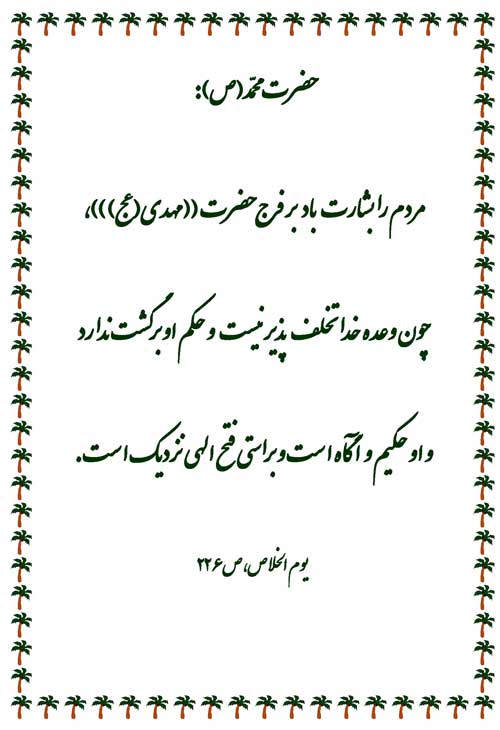 حضرت محمّد (ص):
مردم را بشارت باد بر فرج حضرت ((مهدی (عج)))،
چون وعده خدا تخلف پذیر نیست و حکم او برگشت ندارد
و او حکیم و آگاه است و براستی فتح الهی نزدیک است.
یوم الخلاص، ص ۲۲۶